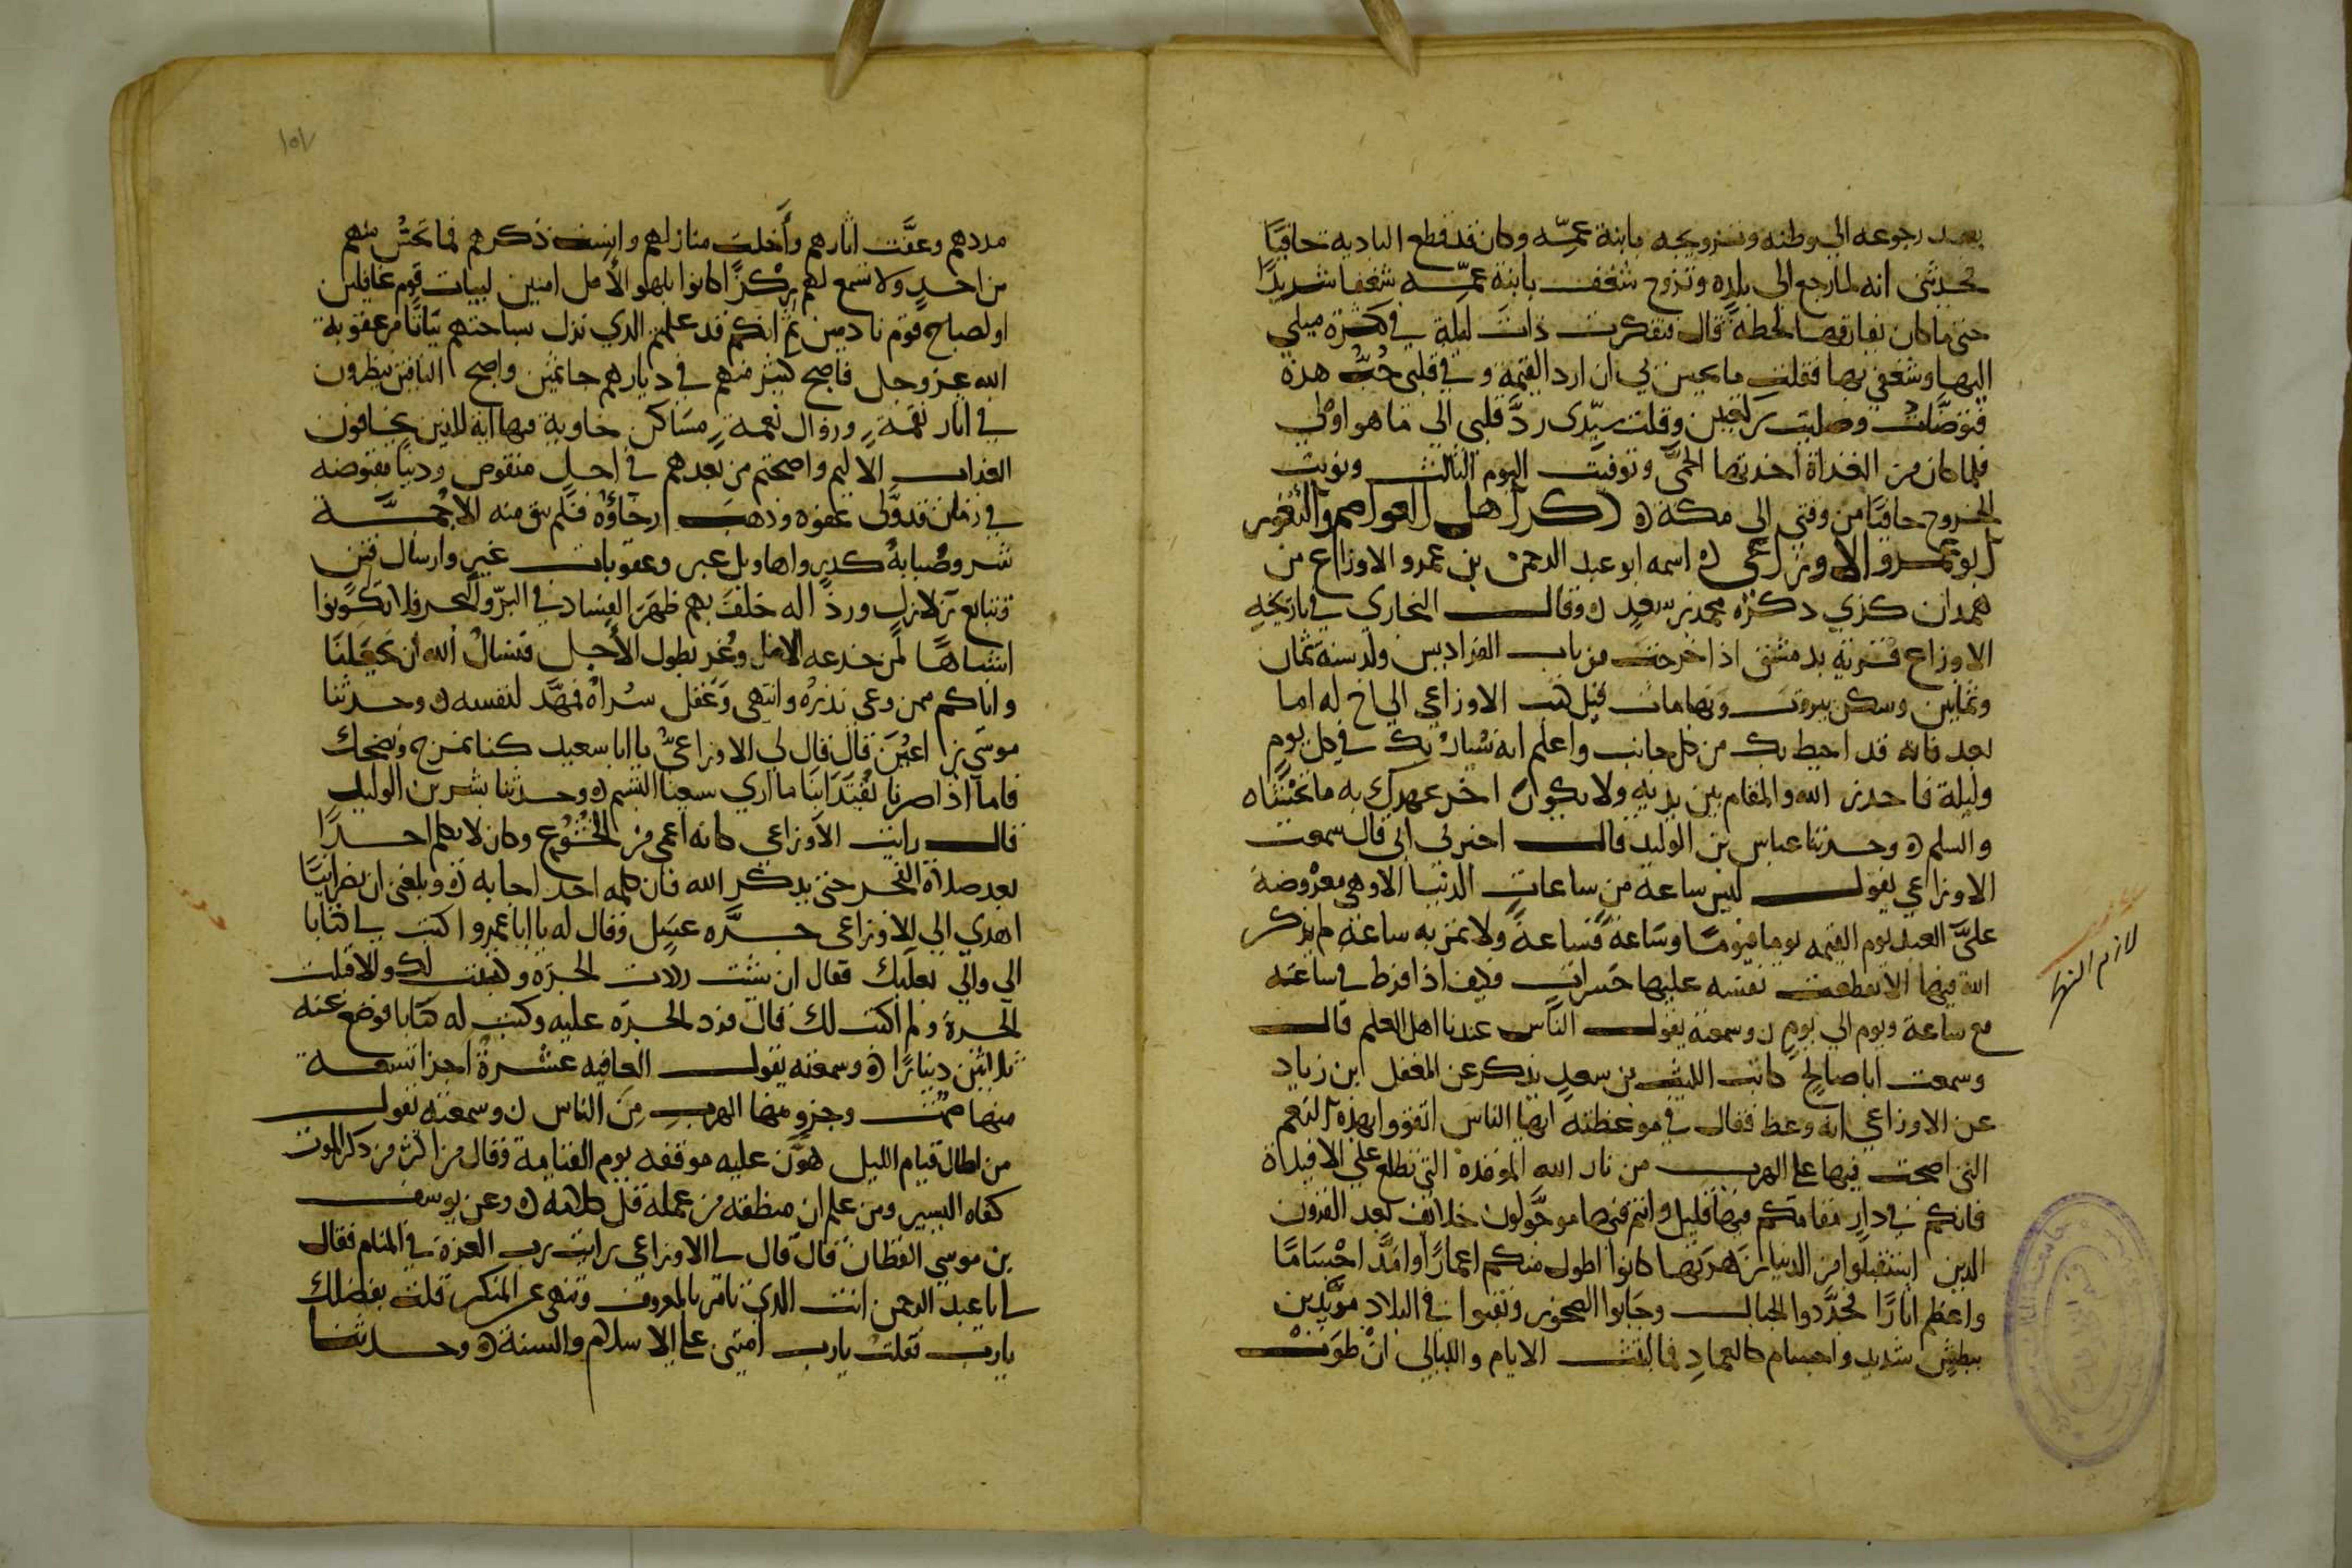 بعد رجوعه الي وطنه وتزويجه بابنة عمّه وكان قد قطع الباديه حافيًا
فحدثني انه لما رجع الى بلده وتزوج شغف بابنة عمّه شغفا شديدًا
حتى ما كان يفارقها لحظة قال فتفكرت ذات ليلة في كثرة ميلي
اليها وشغفي بها فقلت ما يحسن لي ان ارد القيمة وفي قلبي حُبُّ هذه
فتوضَّاتُ وصليت ركعتين وقلت سيّدى ردَّ قلبي الي ما هو اولى
فلما كان من الغداة اخذتها الحمَّى وتوفيت اليوم الثالث ونويت
الخروج حافيًا من وقتي الى مكة ذكر اهل العواصم والثغور
ابو عمرو الاوزاعى اسمه ابو عبد الرحمن بن عمرو الاوزاع من
همدان كذي ذكره محمد بن سعد وقال البخاري في تاريخه
الاوزاع قرية بدمشق اذا خرجت من باب الفراديس ولد سنه ثمان
وثمانين وسكن بيروت وبها مات قيل كتب الاوزاعي الي اخ له اما
بعد فانه قد احيط بك من كل جانب واعلم انه يُسارُ بك في كل يومٍ
وليلة فاحذر الله والمقام بين يديه ولا يكون اخر عهدك به
والسلم وحدثنا عباس بن الوليد قال اخبرني ابي قال سمعت
الاوزاعي يقول ليس ساعة من ساعات الدنيا الا وهي معروضة
علىَّ العبد يوم القيمه يوما فيومًا وساعة فساعةً ولا تمر به ساعة لم يذكر
الله فيها الا تقطعت نفسه عليها حسرات فكيف اذا فرط في ساعته
مع ساعة ويوم الي يوم وسمعته يقول الناس عندنا اهل العلم قال
وسمعت ابا صالح كاتب الليث بن سعد يذكر عن المغفل ابن زياد
عن الاوزاعي انه وعظ فقال في موعظته ايها الناس اتقووا بهذه النعم
التي اصبحت فيها على الهرب من نار الله الموقدة التي تطلع على الافيداة
فانكم في دار مقامكم فيها قليل وانتم فيها موجَّولون خلائف بعد القرون
الذين استقبلوا من الدنيا زهرتها كانوا اطول منكم اعمارًا وامدَّ اجسامًا
واعظم اثارًا فجدَّدوا الجبال وجابوا الصخور ونقبوا في البلاد مؤيّدين
ببطشٍ شديد واجسام كالعمادِ فما لبثت الايام والليالي ان طوت
لازم النهار
١٥٧
مددهم وعفَّت اثارهم وأخلت منازلهم وانست ذكرهم فما تحسُّ منهم
من احدٍ ولا تسمع لهم ركزًا كانوا بلهو الأمل امنين لبيات قوم غافلين
او لصباح قوم نادمين ثم انكم قد علمتم الذي نزل بساحتهم بياتًا من عقوبة
الله عز وجل فاصبح كثير منهم في ديارهم جاثمين واصبح الباقين ينظرون
في اثار نقمةٍ وزوال نعمةٍ ومساكن خاوية فيها اية للذين يخافون
العذاب الاليم واصبحتم من بعدهم في اجل منقوص ودنيا مقبوضه
في زمان قد ولَّى عفوه وذهب رخاؤه فلم يبق منه الا حُمَّة
شر وصُبابةُ كدرٍ واهاويل عبر وعقوبات غيرٍ وارسال فتن
وتتابع زلازل ورذاله خلف بهم ظهر الفساد في البرّ والبحر فلا تكونوا
اشباهًا لمن خدعه الامل وغُر بطول الأجل فنسالُ الله أن يجعلنا
واياكم ممن وعى نذره وانتهى وعقل سُراه فمهَّد لنفسه وحدثنا
موسَى بن اعين قال قال لي الاوزاعىّ يا ابا سعيد كنا نمزح ونضحك
فاما اذا صرنا يُقتدَا بنا ما ارى يسعنا التبسّم وحدثنا بشر بن الوليد
قال رايت الأوزاعي كانه أعمى من الخُشُوع وكان لا يكلم احدًا
بعد صلاة الفجر حتى يذكر الله فان كلمه احد اجابه وبلغني ان نصرانيًّا
اهدي الي للاوزاعى جرَّه عسَل وقال له يا ابا عمرو اكتب لي كتابا
الى والي بعلبك فقال ان شئت رددت الجرّه وكتبت لك والا قبلت
الجرة ولم اكتب لك قال فرد الجرّه عليه وكتب له كتابا فوضع عنه
ثلاثين دينارًا وسمعته يقول العافيه عشرةُ اجزا تسعة
منها صمت وجزو منها الهرب مِن الناس وسمعته يقول
من اطال قيام الليل هوَّن عليه موقفه يوم القيامة وقال من اكثر من ذكر الموت
كفاه اليسير ومن علم ان منطقه من عمله قلَّ كلامه وعن يوسف
بن موسي القطان قال قال لي الاوزاعي رايت رب العزة في المنام فقال
لي ابا عبد الرحمن انت الذي تامر بالمعروف وتنهى عن المنكر قلت بفضلك
يا رب فقلت يا رب امتنى على الاسلام والسنة وحدثنا